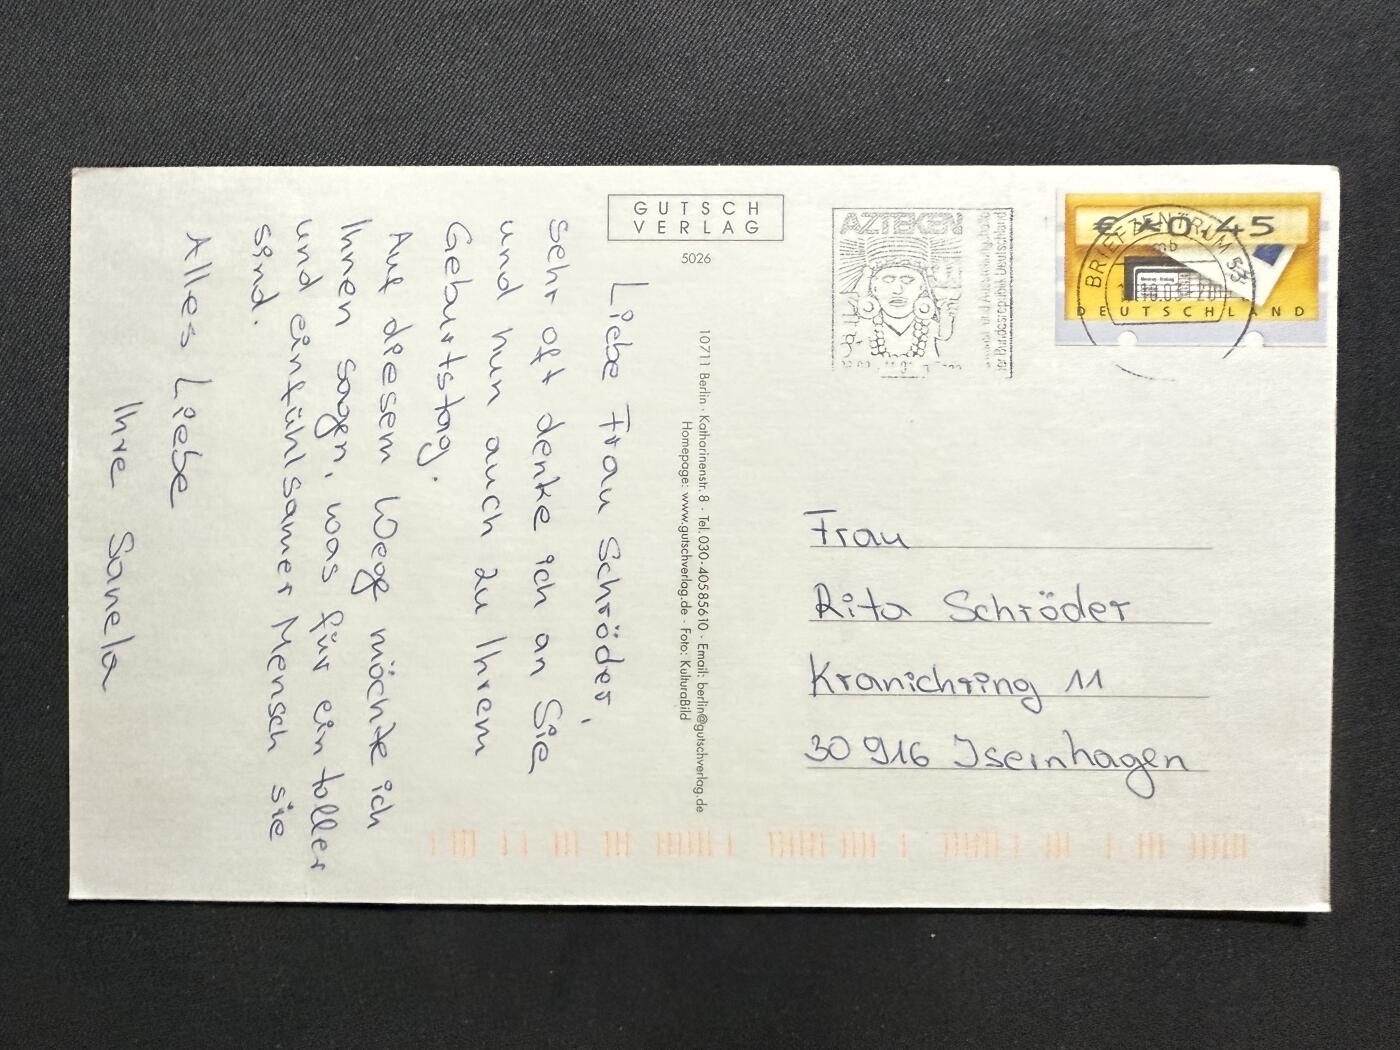 Liebe Frau Schröder,
sehr oft denke ich an Sie
und nun auch zu Ihrem
Geburtstag.
Auf diesem Wege möchte ich
Ihnen sagen, was für ein toller
und einfühlsamer Mensch sie
sind.
Alles Liebe
Ihre Sanela
GUTSCH
VERLAG
5026
10711 Berlin · Katharinenstr. 8 · Tel. 030-40585610 · Email: berlin@gutschverlag.de
Homepage: www.gutschverlag.de · Foto: KulturaBild
AZTEKEN
der Bundesrepublik Deutschland
€ *0,45
DEUTSCHLAND
BRIEFZENTRUM 53
mb
Frau
Rita Schröder
Kranichring 11
30 916 Isernhagen